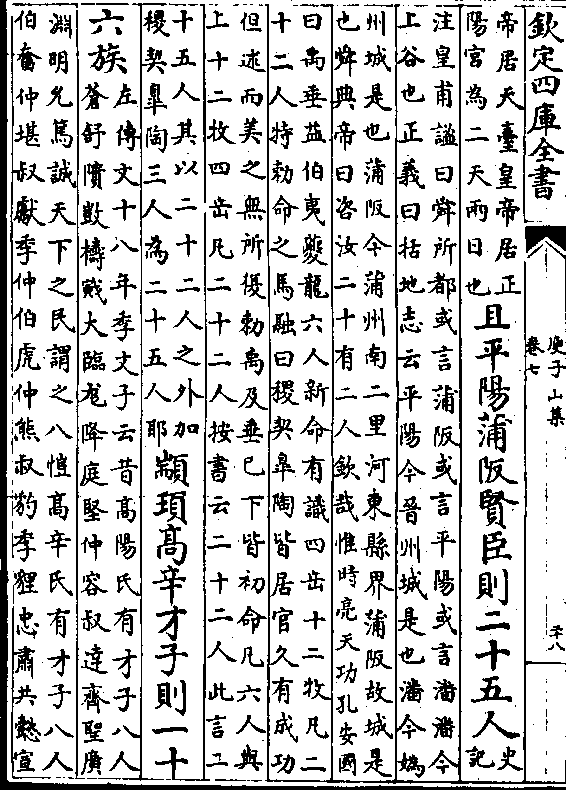 欽定四庫全書
庾子山集
卷七
二十八
帝居天臺皇帝居正
陽宮為二天兩日也
且平陽蒲阪賢臣則二十五人
史
記
注皇甫謐曰舜所都或言蒲阪或言平陽或言潘潘今
上谷也正義曰括地志云平陽今晉州城是也潘今媯
州城是也蒲阪今蒲州南二里河東縣界蒲阪故城是
也舜典帝曰咨汝二十有二人欽哉惟時亮天功孔安國
曰禹垂益伯夷夔龍六人新命有識四岳十二牧凡二
十二人特勅命之馬融曰稷契臯陶皆居官久有成功
但述而美之無所復勅禹及垂已下皆初命凡六人與
上十二牧四岳凡二十二人按書云二十二人此言二
十五人其以二十二人之外加
稷契臯陶三人為二十五人耶
顓頊高辛才子則一十
六族
左傳文十八年季文子云昔高陽氏有才子八人
蒼舒隤敳檮戭大臨尨降庭堅仲容叔達齊聖廣
淵明允篤誠天下之民謂之八愷高辛氏有才子八人
伯奮仲堪叔獻季仲伯虎仲熊叔豹季貍忠肅共懿宣